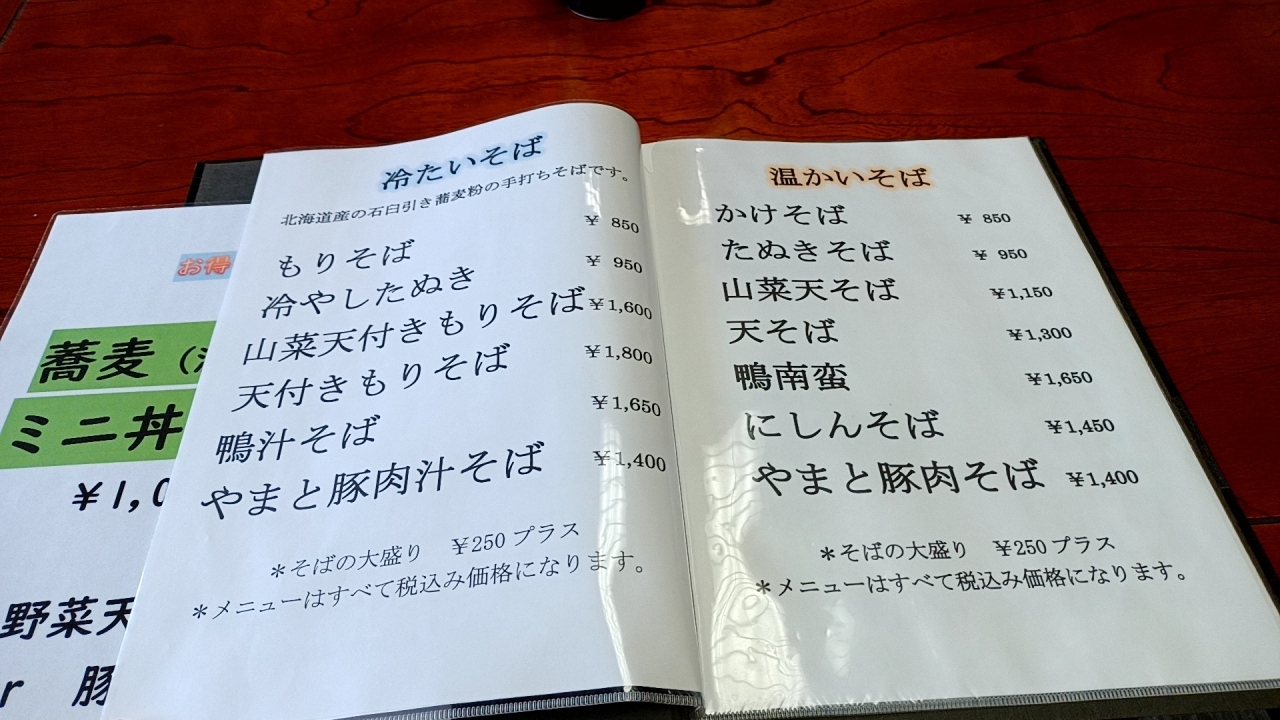 お得
蕎麦
ミニ丼
￥1,0
野菜天
r 豚
冷たいそば
北海道産の石臼引き蕎麦粉の手打ちそばです。
もりそば ￥ 850
冷やしたぬき ￥ 950
山菜天付きもりそば ￥1,600
天付きもりそば ￥1,800
鴨汁そば ￥1,650
やまと豚肉汁そば ￥1,400
＊そばの大盛り ￥250 プラス
＊メニューはすべて税込み価格になります。
温かいそば
かけそば ￥ 850
たぬきそば ￥ 950
山菜天そば ￥1,150
天そば ￥1,300
鴨南蛮 ￥1,650
にしんそば ￥1,450
やまと豚肉そば ￥1,400
＊そばの大盛り ￥250 プラス
＊メニューはすべて税込み価格になります。